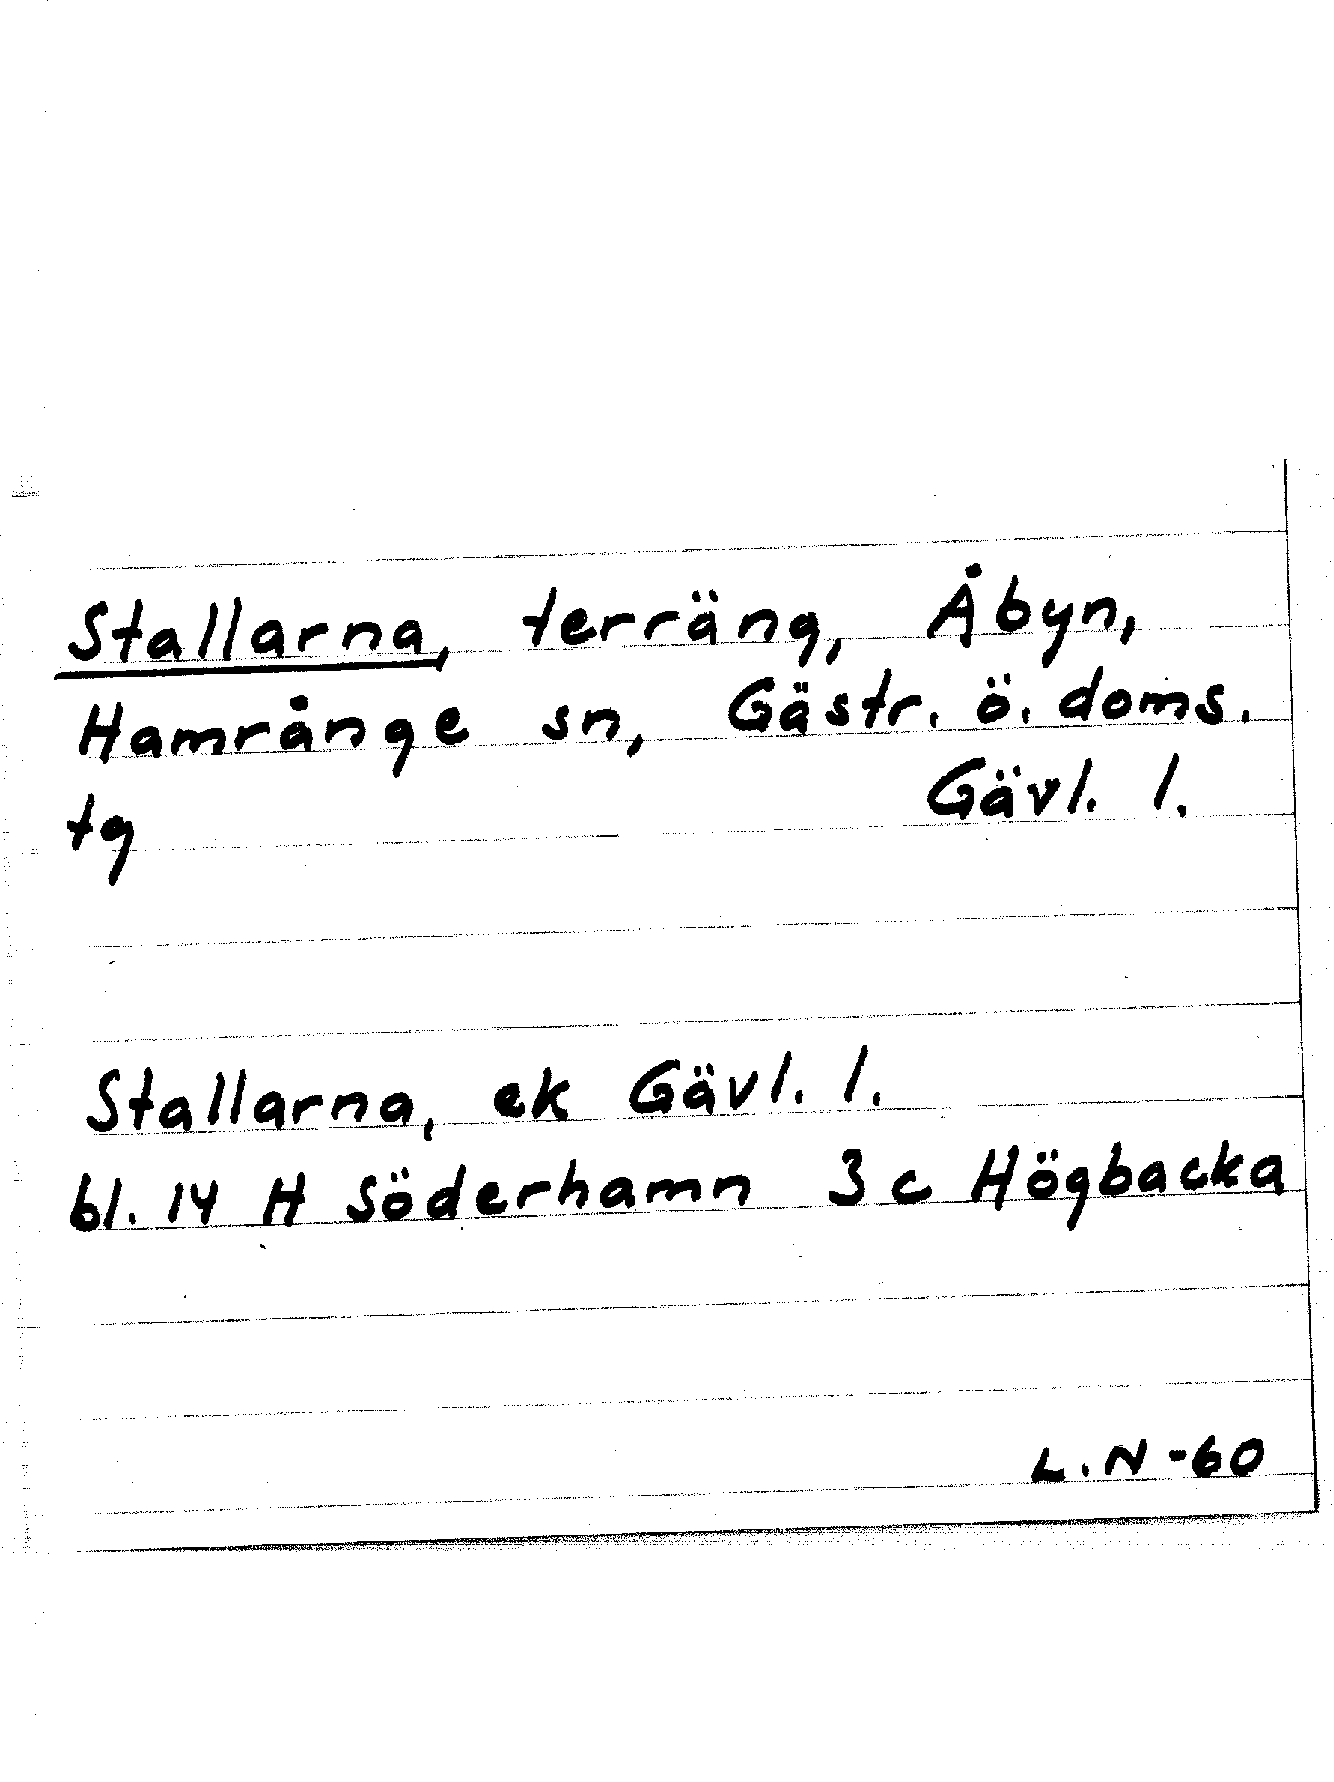 Stallarna, terräng, Åbyn,
Hamrånge sn, Gästr. ö. doms.
tg Gävl. l.
Stallarna, ek Gävl. l.
bl. 14 H Söderhamn 3 c Högbacka
L.N -60